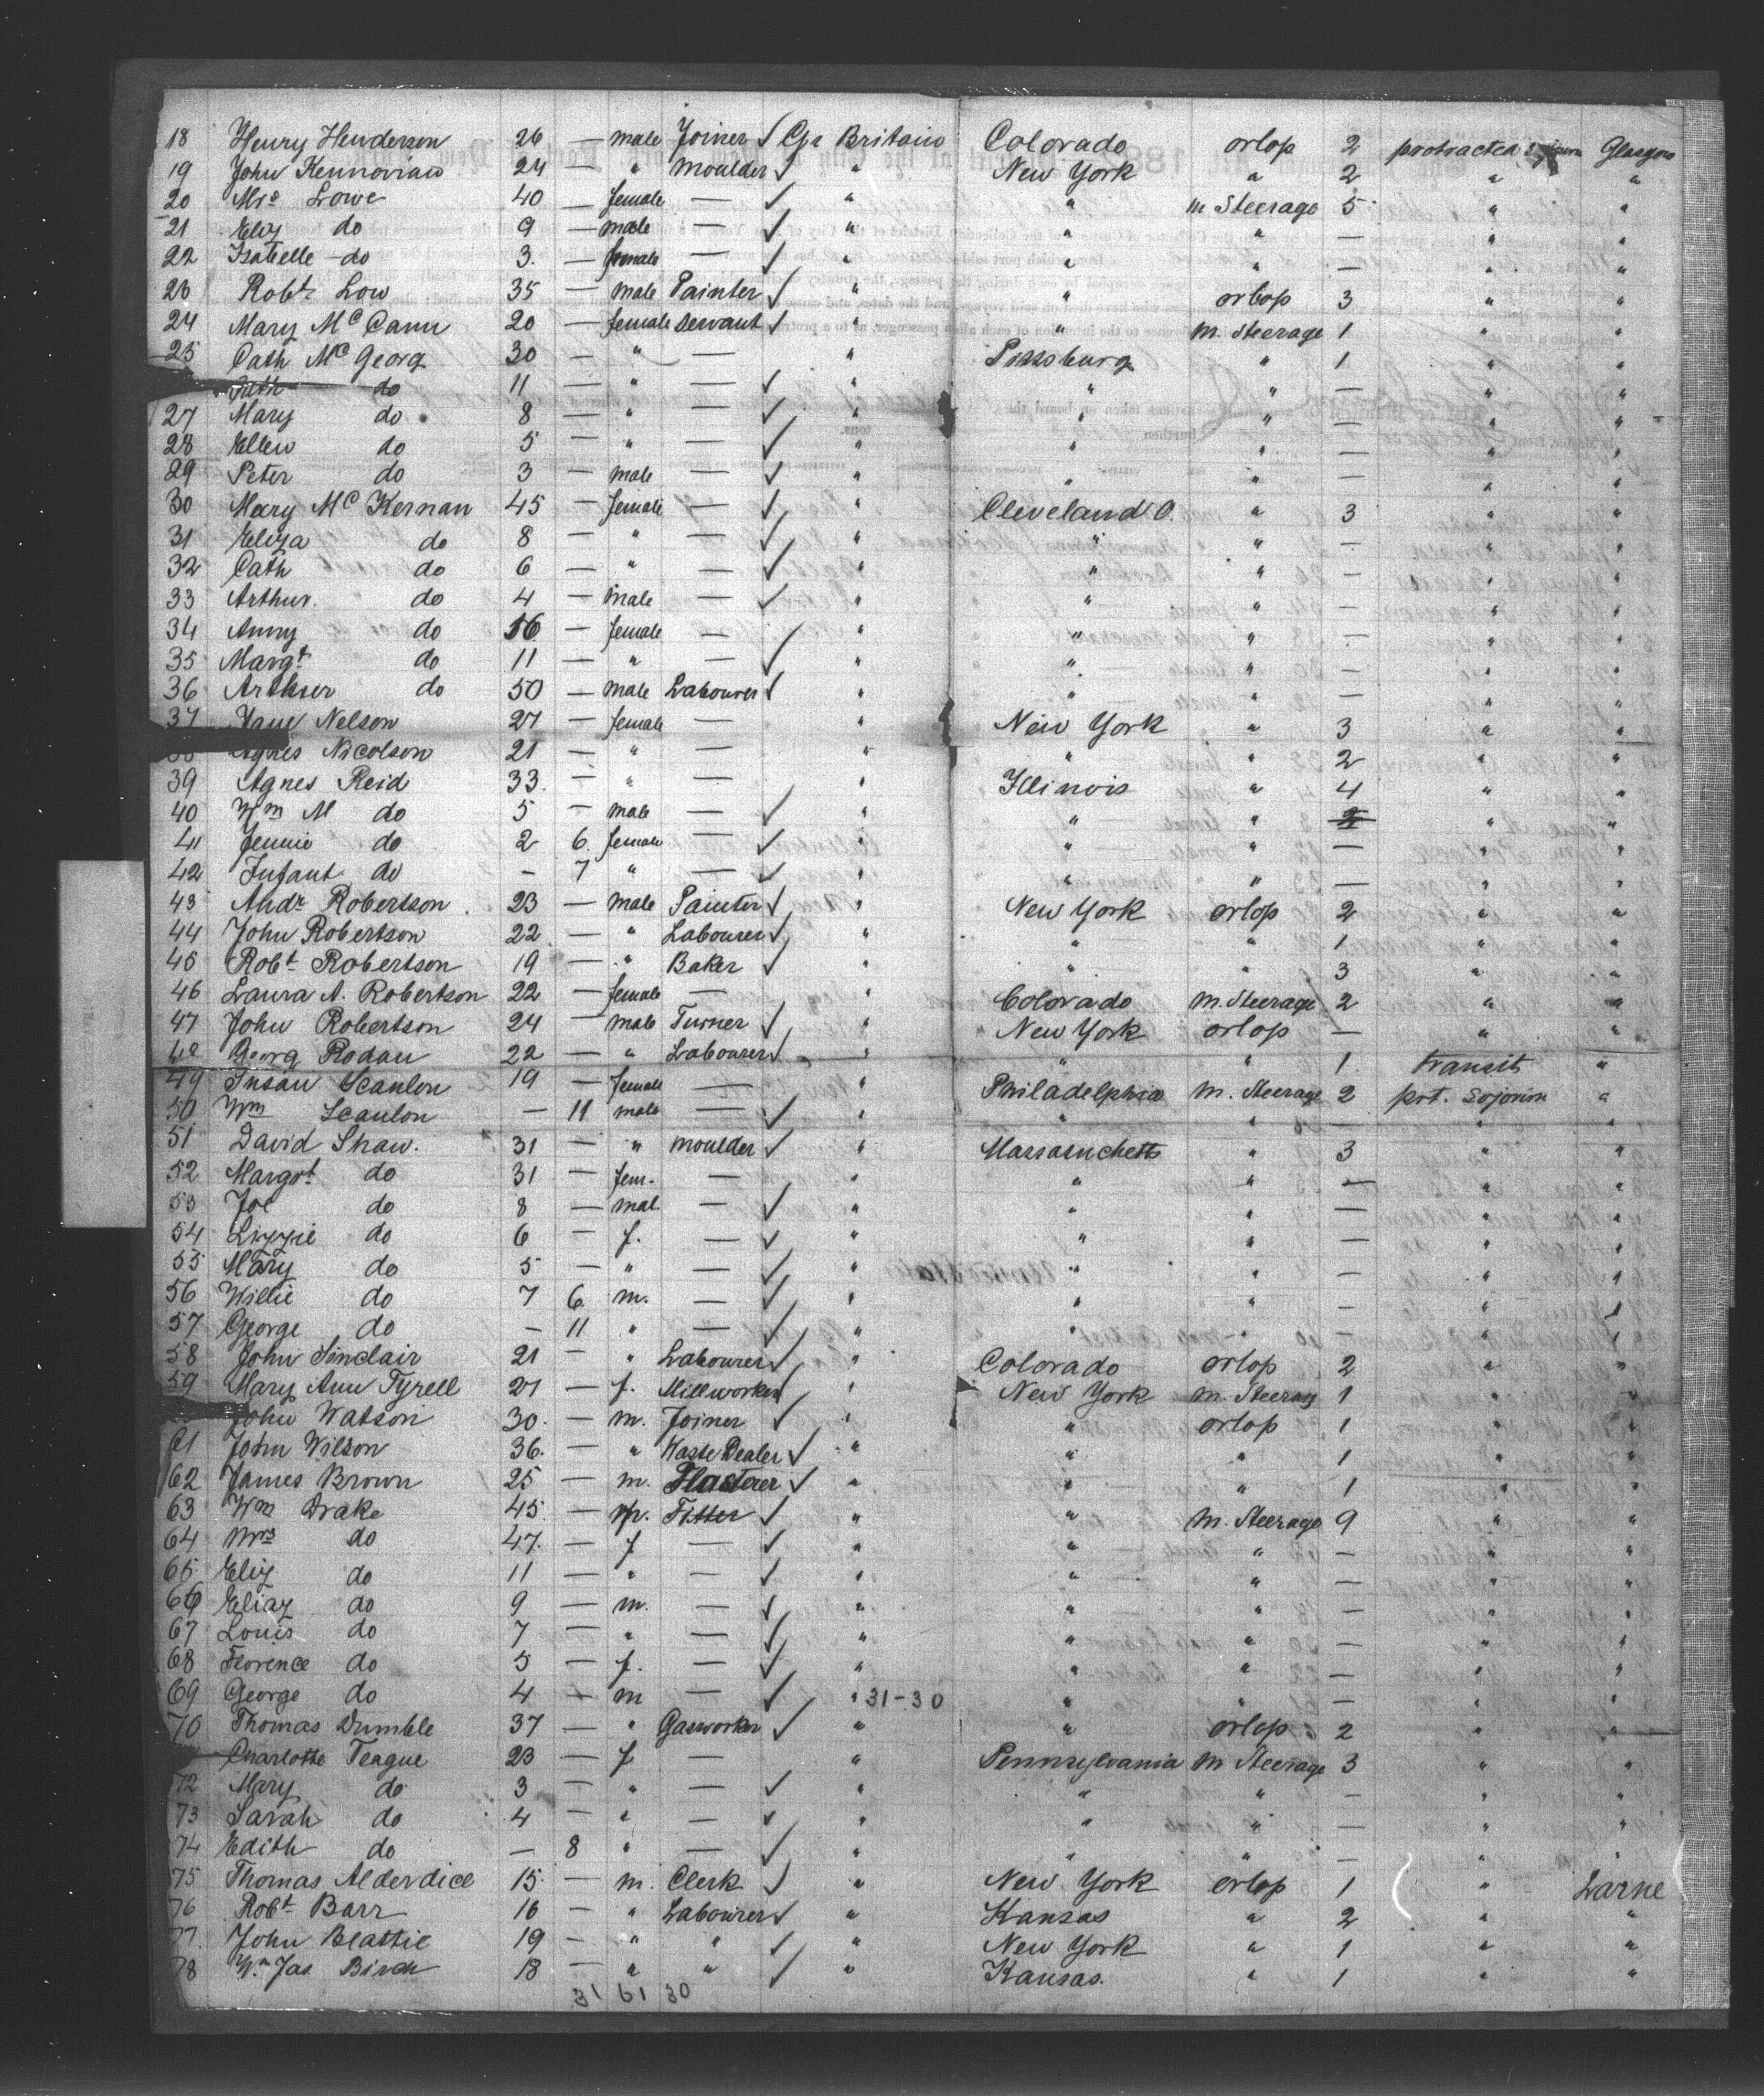 18 Henry Henderson 26 — male Joiner ✓ Gr Britain Colorado orlop 2 protracted Glasgow
19 John 24 — " moulder ✓ " New York " 2 " "
20 Mrs Lowe 40 — female — ✓ " " m Steerage 5 " "
21 Eliz do 9 — male — ✓ " " " — " "
22 Isabelle do 3. — female — ✓ " " " — " "
23 Robt. Low 35 — male Painter ✓ " " orlop 3 " "
24 Mary Mc Cann 20 — female Servant ✓ " " m. steerage 1 " "
25 Cath Mc Georg 30 — " — " " 1 " "
do 11 — " — ✓ " " " — " "
27 Mary do 8 — " — ✓ " " " — " "
28 Ellen do 5 — " — ✓ " " " — " "
29 Peter do 3 — male — ✓ " " " — " "
30 Mary Mc Kernan 45 — female — ✓ " Cleveland O. " 3 " "
31 Eliza do 8 — " — ✓ " " " — " "
32 Cath do 6 — " — ✓ " " " — " "
33 Arthur. do 4 — male — ✓ " " " — " "
34 Anny do 16 — female — ✓ " " " — " "
35 Margt do 11 — " — ✓ " " " — " "
36 Arthur do 50 — male Labourer ✓ " " " — " "
37 Jane Nelson 27 — female — " New York " 3 " "
Agnes Nicolson 21 — " — " " " 2 " "
39 Agnes Reid 33. — " — " Illinois " 4 " "
40 Wm M do 5 — male — ✓ " " " " "
41 Jennie do 2 6. female — ✓ " " " — " "
42 Infant do — 7 " — ✓ " " " — " "
43 Andr Robertson 23 — male Painter ✓ " New York orlop 2 " "
44 John Robertson 22 — " Labourer ✓ " " " 1 " "
45 Robt Robertson 19 — " Baker ✓ " " " 3 " "
46 Laura A. Robertson 22 — female — " Colorado m. Steerage 2 " "
47 John Robertson 24 — male Turner ✓ " New York orlop — " "
48 Georg Rodan 22 — " Labourer ✓ " " " 1. transit "
49 Susan Scanlon 19 — female — " Philadelphia m. Steerage 2 prt. Sojourn "
50 Wm Scanlon — 11 male — ✓ " " " — " "
51 David Shaw. 31 — " moulder ✓ " Massasuchetts " 3 " "
52 Margrt do 31 — fem. — " " " — " "
53 Joe do 8 — mal. — ✓ " " " — " "
54 Lizzie do 6 — f. — ✓ " " " — " "
55 Mary do 5 — " — ✓ " " " — " "
56 Willie do 7 6 m. — ✓ " " " — " "
57 George do — 11 " — ✓ " " " — " "
58 John Sinclair 21 — " Labourer ✓ " Colorado orlop 2 " "
59 Mary Ann Tyrell 21 — f. Millworker ✓ " New York m. Steerag 1 " "
John Watson 30. — m. Joiner ✓ " " orlop 1 " "
61 John Wilson 36. — " Waste Dealer ✓ " " " 1 " "
62 James Brown 25 — m. Plasterer ✓ " " " 1 " "
63 Wm Drake 45. — m. Fitter ✓ " " m. Steerage 9 " "
64 Mrs do 47. — f — ✓ " " " — " "
65 Eliz do 11 — " — ✓ " " " — " "
66 Eliaz do 9 — m. — ✓ " " " — " "
67 Louis do 7 — " — ✓ " " " — " "
68 Florence do 5 — f. — ✓ " " " — " "
69 George do 4 — m — ✓ " 31-30 " " — " "
70 Thomas Dumble 37 — " Gasworker ✓ " " orlop 2 " "
Charlotte Teague 23 — f — " Pennsylvania m Steerage 3 " "
72 Mary do 3 — " — ✓ " " " — " "
73 Sarah do 4 — " — ✓ " " " — " "
74 Edith do — 8 " — ✓ " " " — " "
75 Thomas Alderdice 15 — m. Clerk ✓ " New York orlop 1 " Larne
76 Robt Barr 16 — " Labourer ✓ " Kansas " 2 " "
77. John Beattie 19 — " " ✓ " New York " 1 " "
78 Wm Jas Birch 18 — " " ✓ " Kansas. " 1 " "
31 61 30